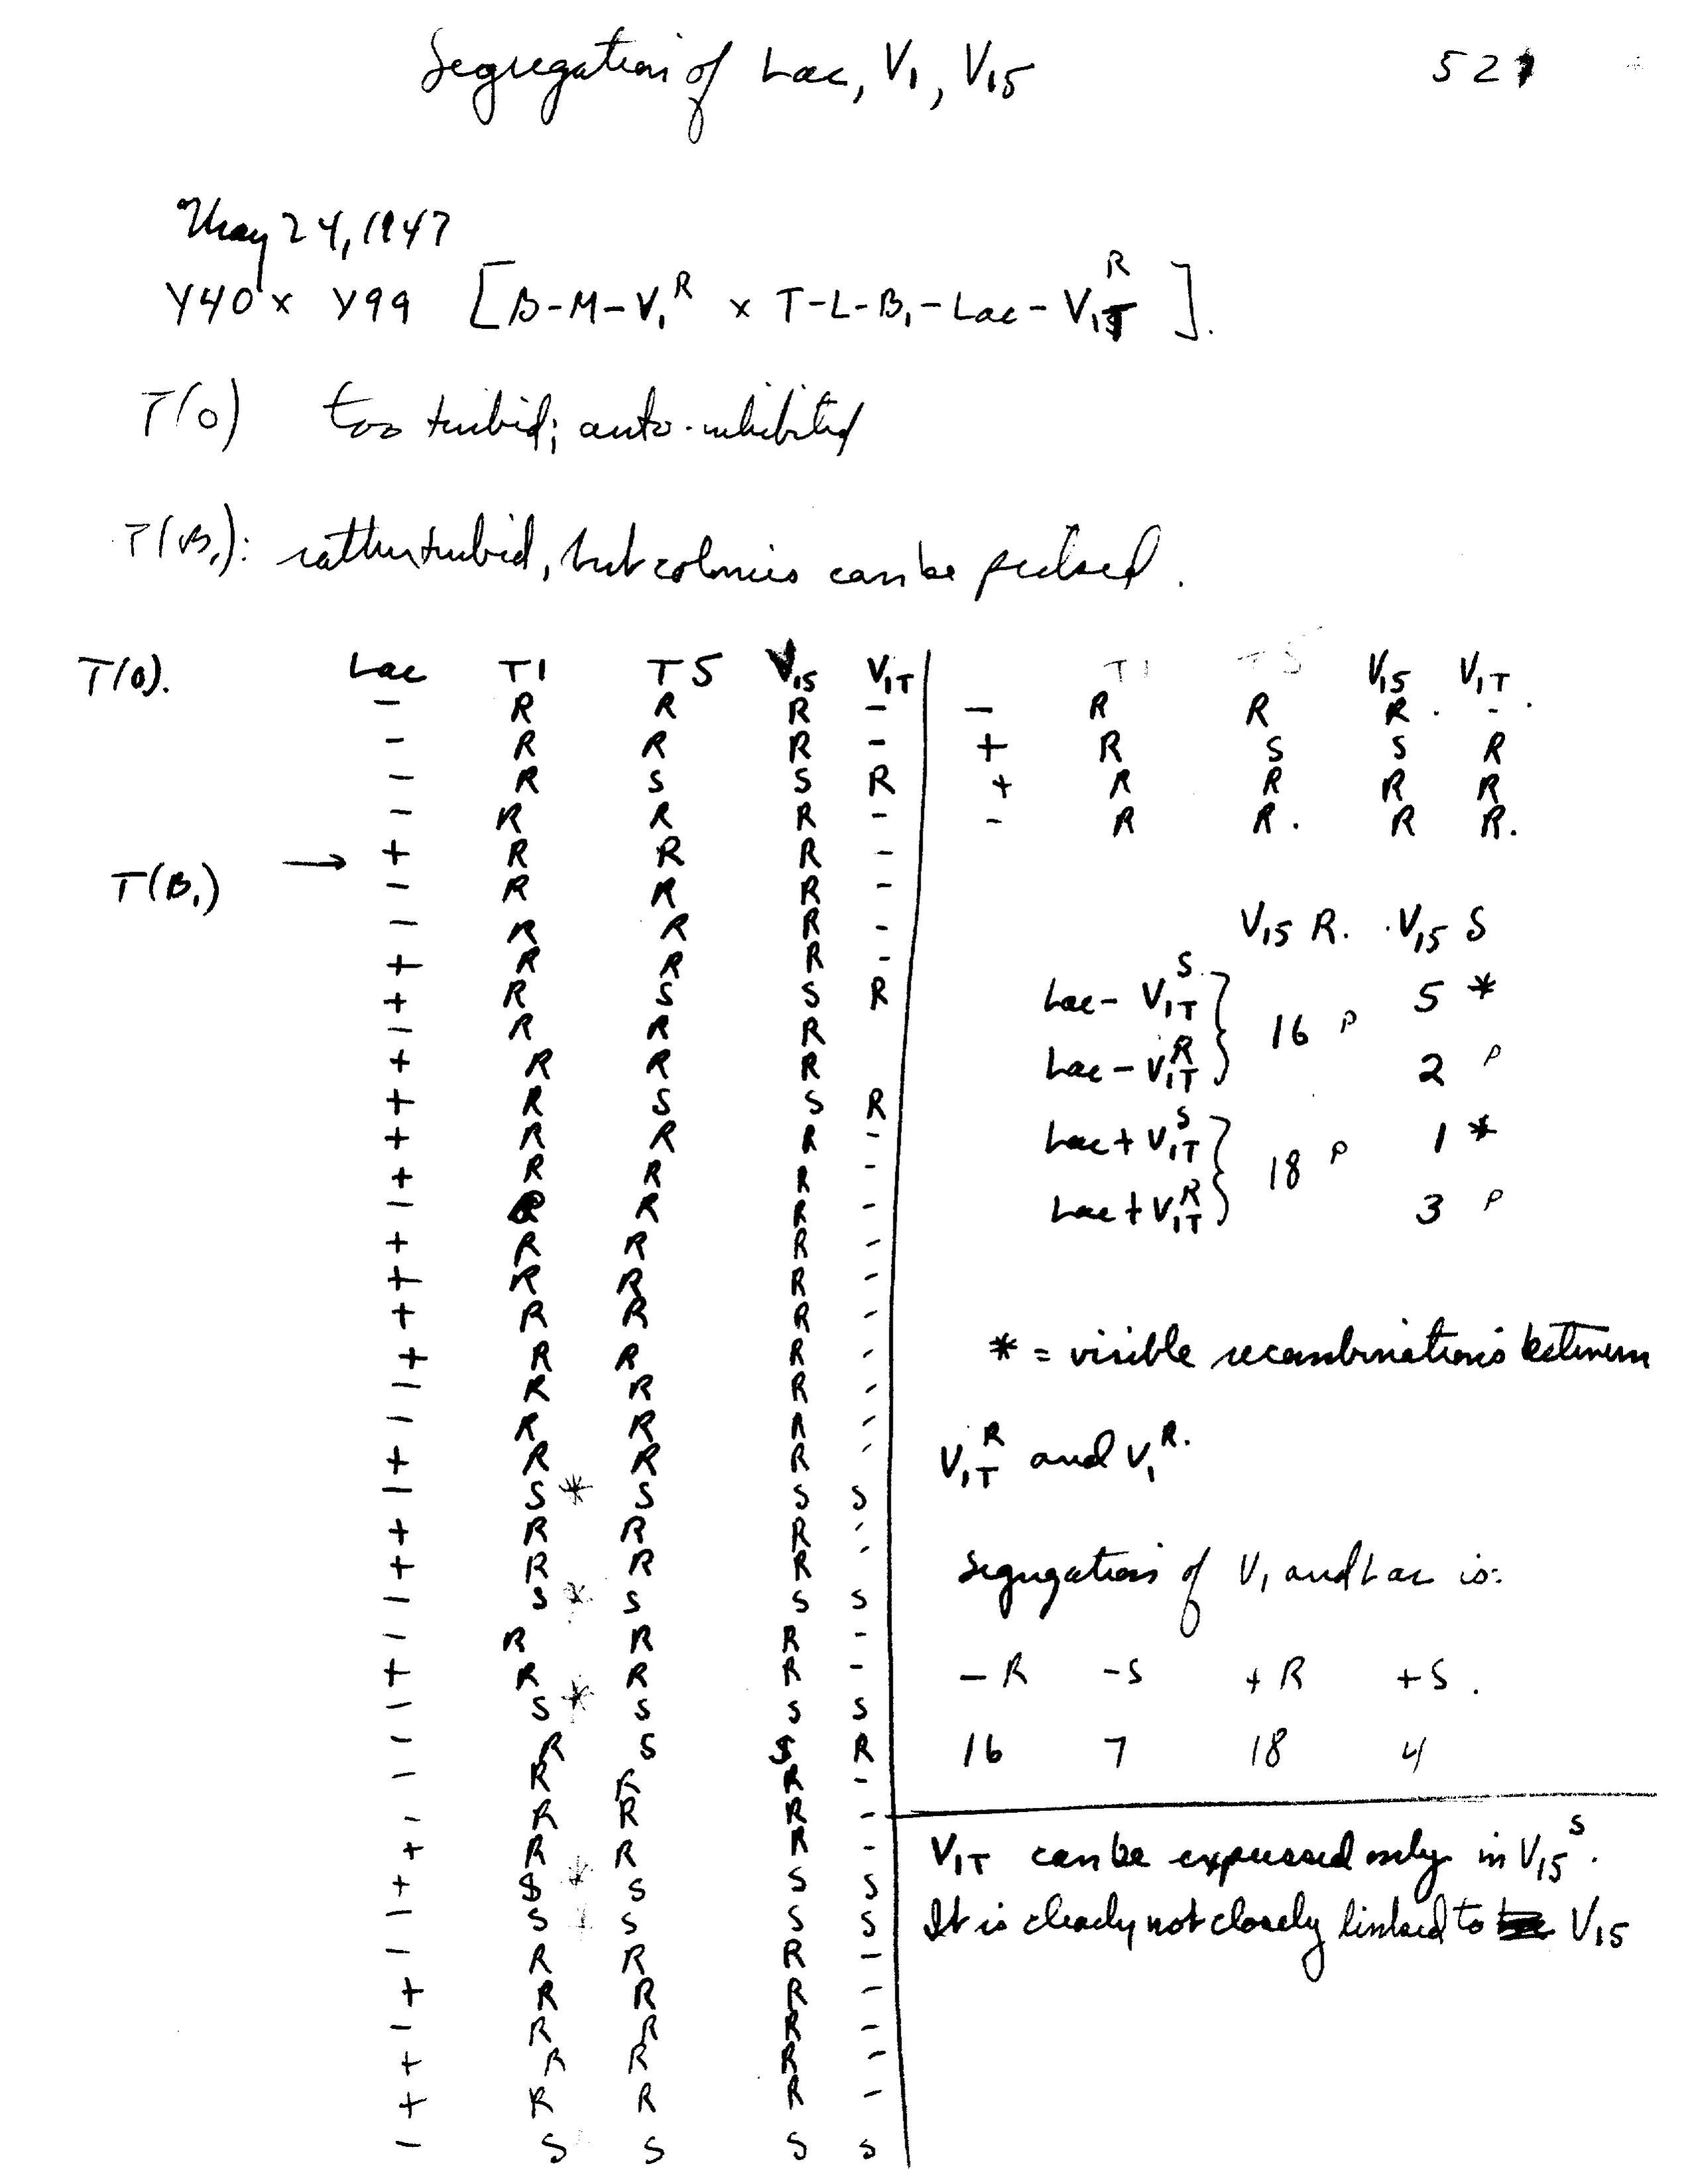 Segregation of Lac, V1, V15 521
May 24, 1947
Y40 x Y99 [B-M-V1^R x T-L-B1-Lac-V1T^R].
T(0) too turbid; auto-inhibited
T(B1): rather turbid, but colonies can be picked.
T(0). Lac T1 T5 V15 V1T
- R R R -
- R R R -
- R S S R
- R R R -
+ R R R -
T(B1) →
- R R R -
- R R R -
+ R R R -
+ R S S R
- R R R
+ R R R
+ R S S R
+ R R R -
+ R R R -
- R R R -
+ R R R -
+ R R R -
+ R R R -
+ R R R -
- R R R -
- R R R -
+ R R R -
- S * S S S
+ R R R -
+ R R R -
- S * S S S
- R R R -
+ R R R -
- S * S S S
- R S S R
- R R R -
- R R R -
+ R R R -
+ S * S S S
- S * S S S
- R R R -
+ R R R -
- R R R -
+ R R R -
+ R R R -
- S S S S
T1 T5 V15 V1T
- R R R . - .
+ R S S R
+ R R R R
- R R . R R.
V15 R. . V15 S
Lac- V1T^S } 16 p 5 *
Lac- V1T^R 2 p
Lac+ V1T^S } 18 p 1 *
Lac+ V1T^R 3 p
* = visible recombinations between
V1T^R and V1^R.
Segregation of V1 and Lac is:
-R -S +R +S.
16 7 18 4
V1T can be expressed only in V15^S.
It is clearly not closely linked to V15